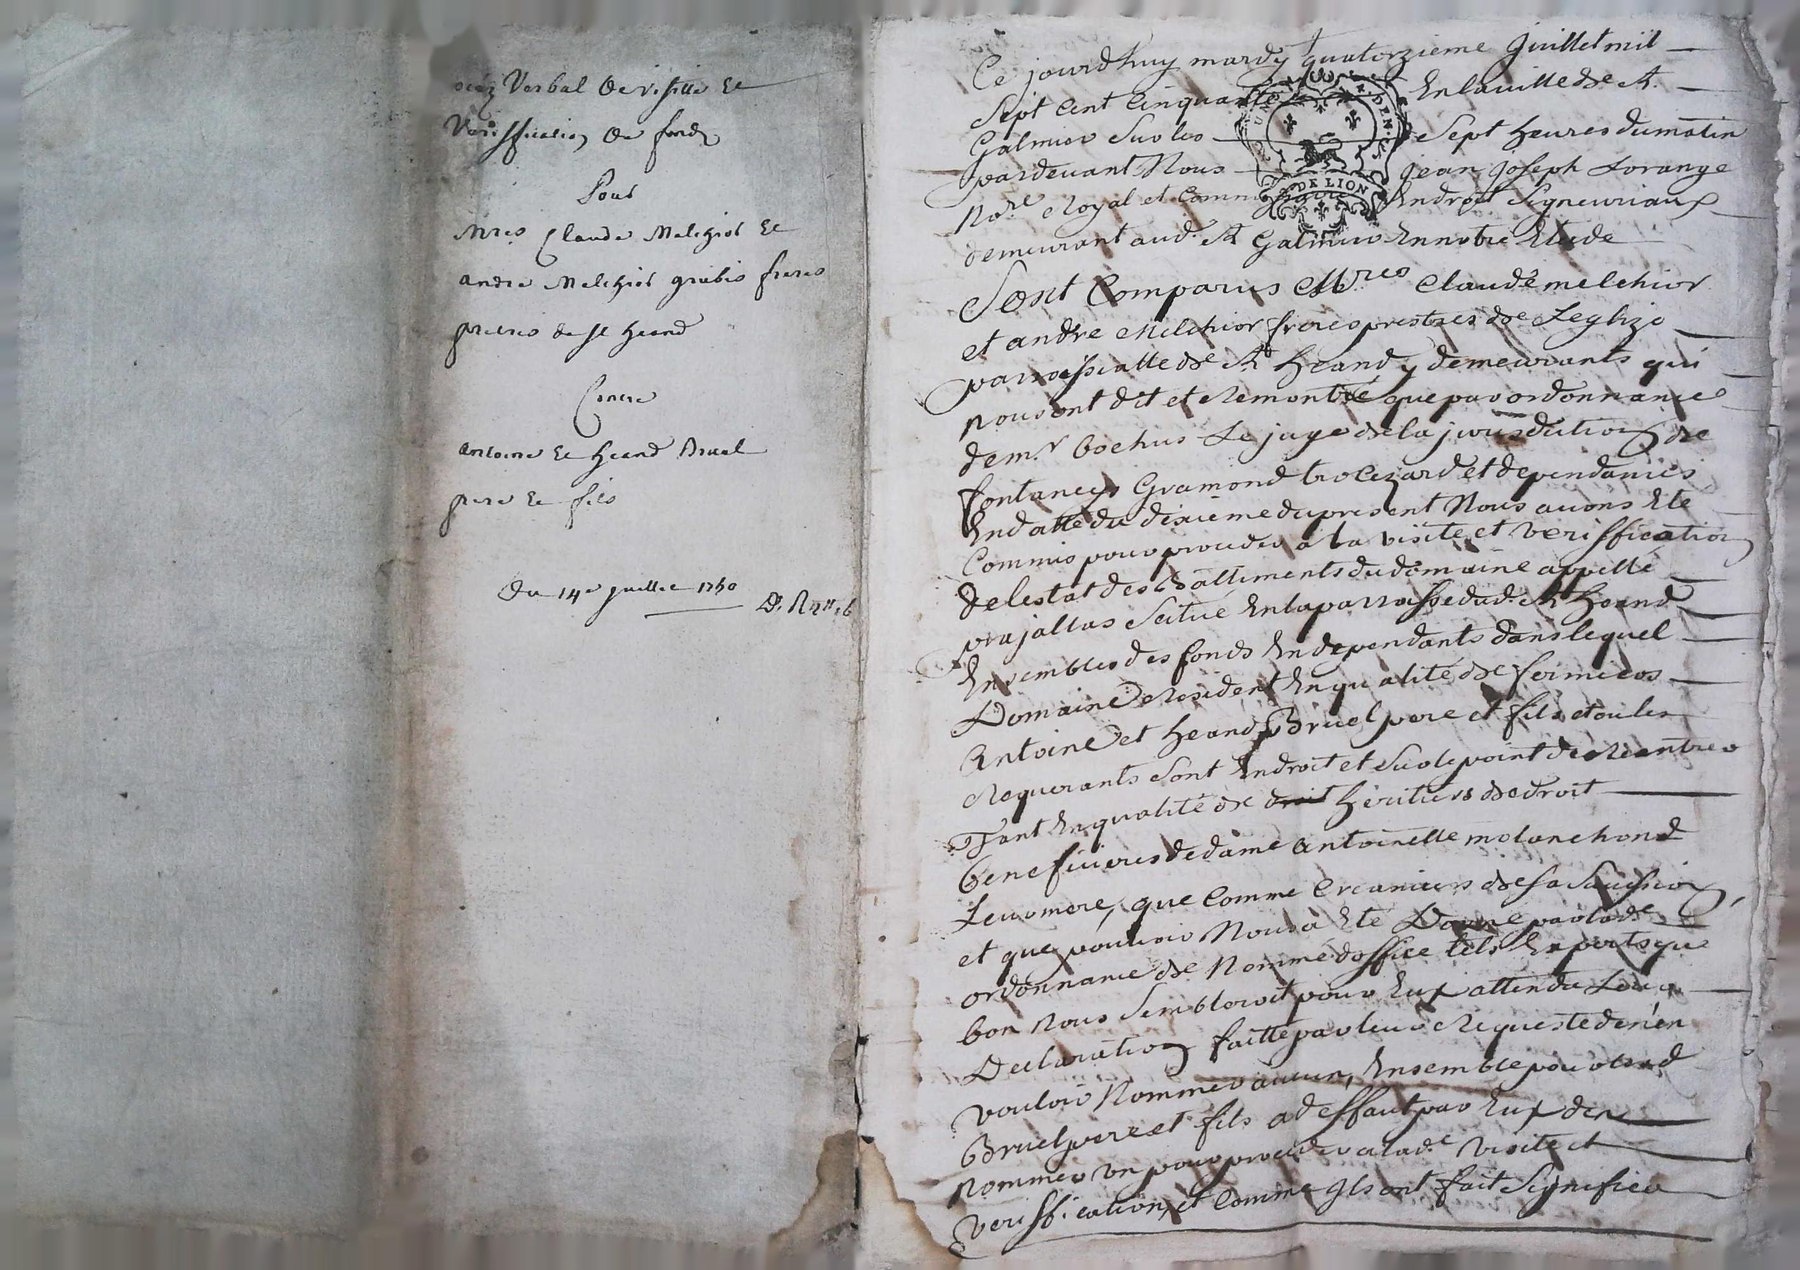 Verbal de visitte Et
Veriffication de fonds
Pour
Mres Claude Melchior Et
andre Melchior grubis freres
pretres de St heand
Contre
antoine Et heand Bruel
pere Et fils
Du 14e juillet 1750
Ce jourdhuy mardy quatorzieme Juillet mil
Sept Cent Cinquante En la ville de St
Galmier Sur les Sept heures du matin
pardevant Nous Jean Joseph Lorange
Nore Royal et Commissaire En droit Seigneuriaux
demeurant aud. St Galmier En notre Etude
DE LION
Sont Comparus Mres Claude melchior
et andre Melchior freres prestres de Leglize
parroissialle de St heand y demeurants qui
nous ont dit et Remontré que par ordonnance
de mr bochus Le juge de la jurisdiction de
fontaneys Gramond trocezard et dependances
En datte du dixieme du present Nous avons Eté
Commis pour proceder a la visite et veriffication
de lestat des battiments du domaine appellé
prajallas Scitué En la parroisse dud. St heand
Ensembles des fonds En dependants dans lequel
Domaine Resident En qualité de fermiers
Antoine et heand Bruel pere et fils et ou les
Requerants Sont En droit et Sur le point de Rentrer
Tant En qualité de droit héritiers de droit
beneficieres de dame Antoinette molanchond
Leur mere, que Comme Creanciers de sa Succession,
et que pouvoir Nous a Eté Donné par lade
ordonnance de Nommer d'office tels Experts que
bon nous Sembleroit pour Eux attendu Leur
Declaration faitte par leur Requeste de n'en
vouloir Nommer aucun, Ensemble pour lesd
Bruel pere et fils a deffaut par Eux d'en
nommer un pour proceder a lade visite et
veriffication, et Comme Ils ont fait Signifier